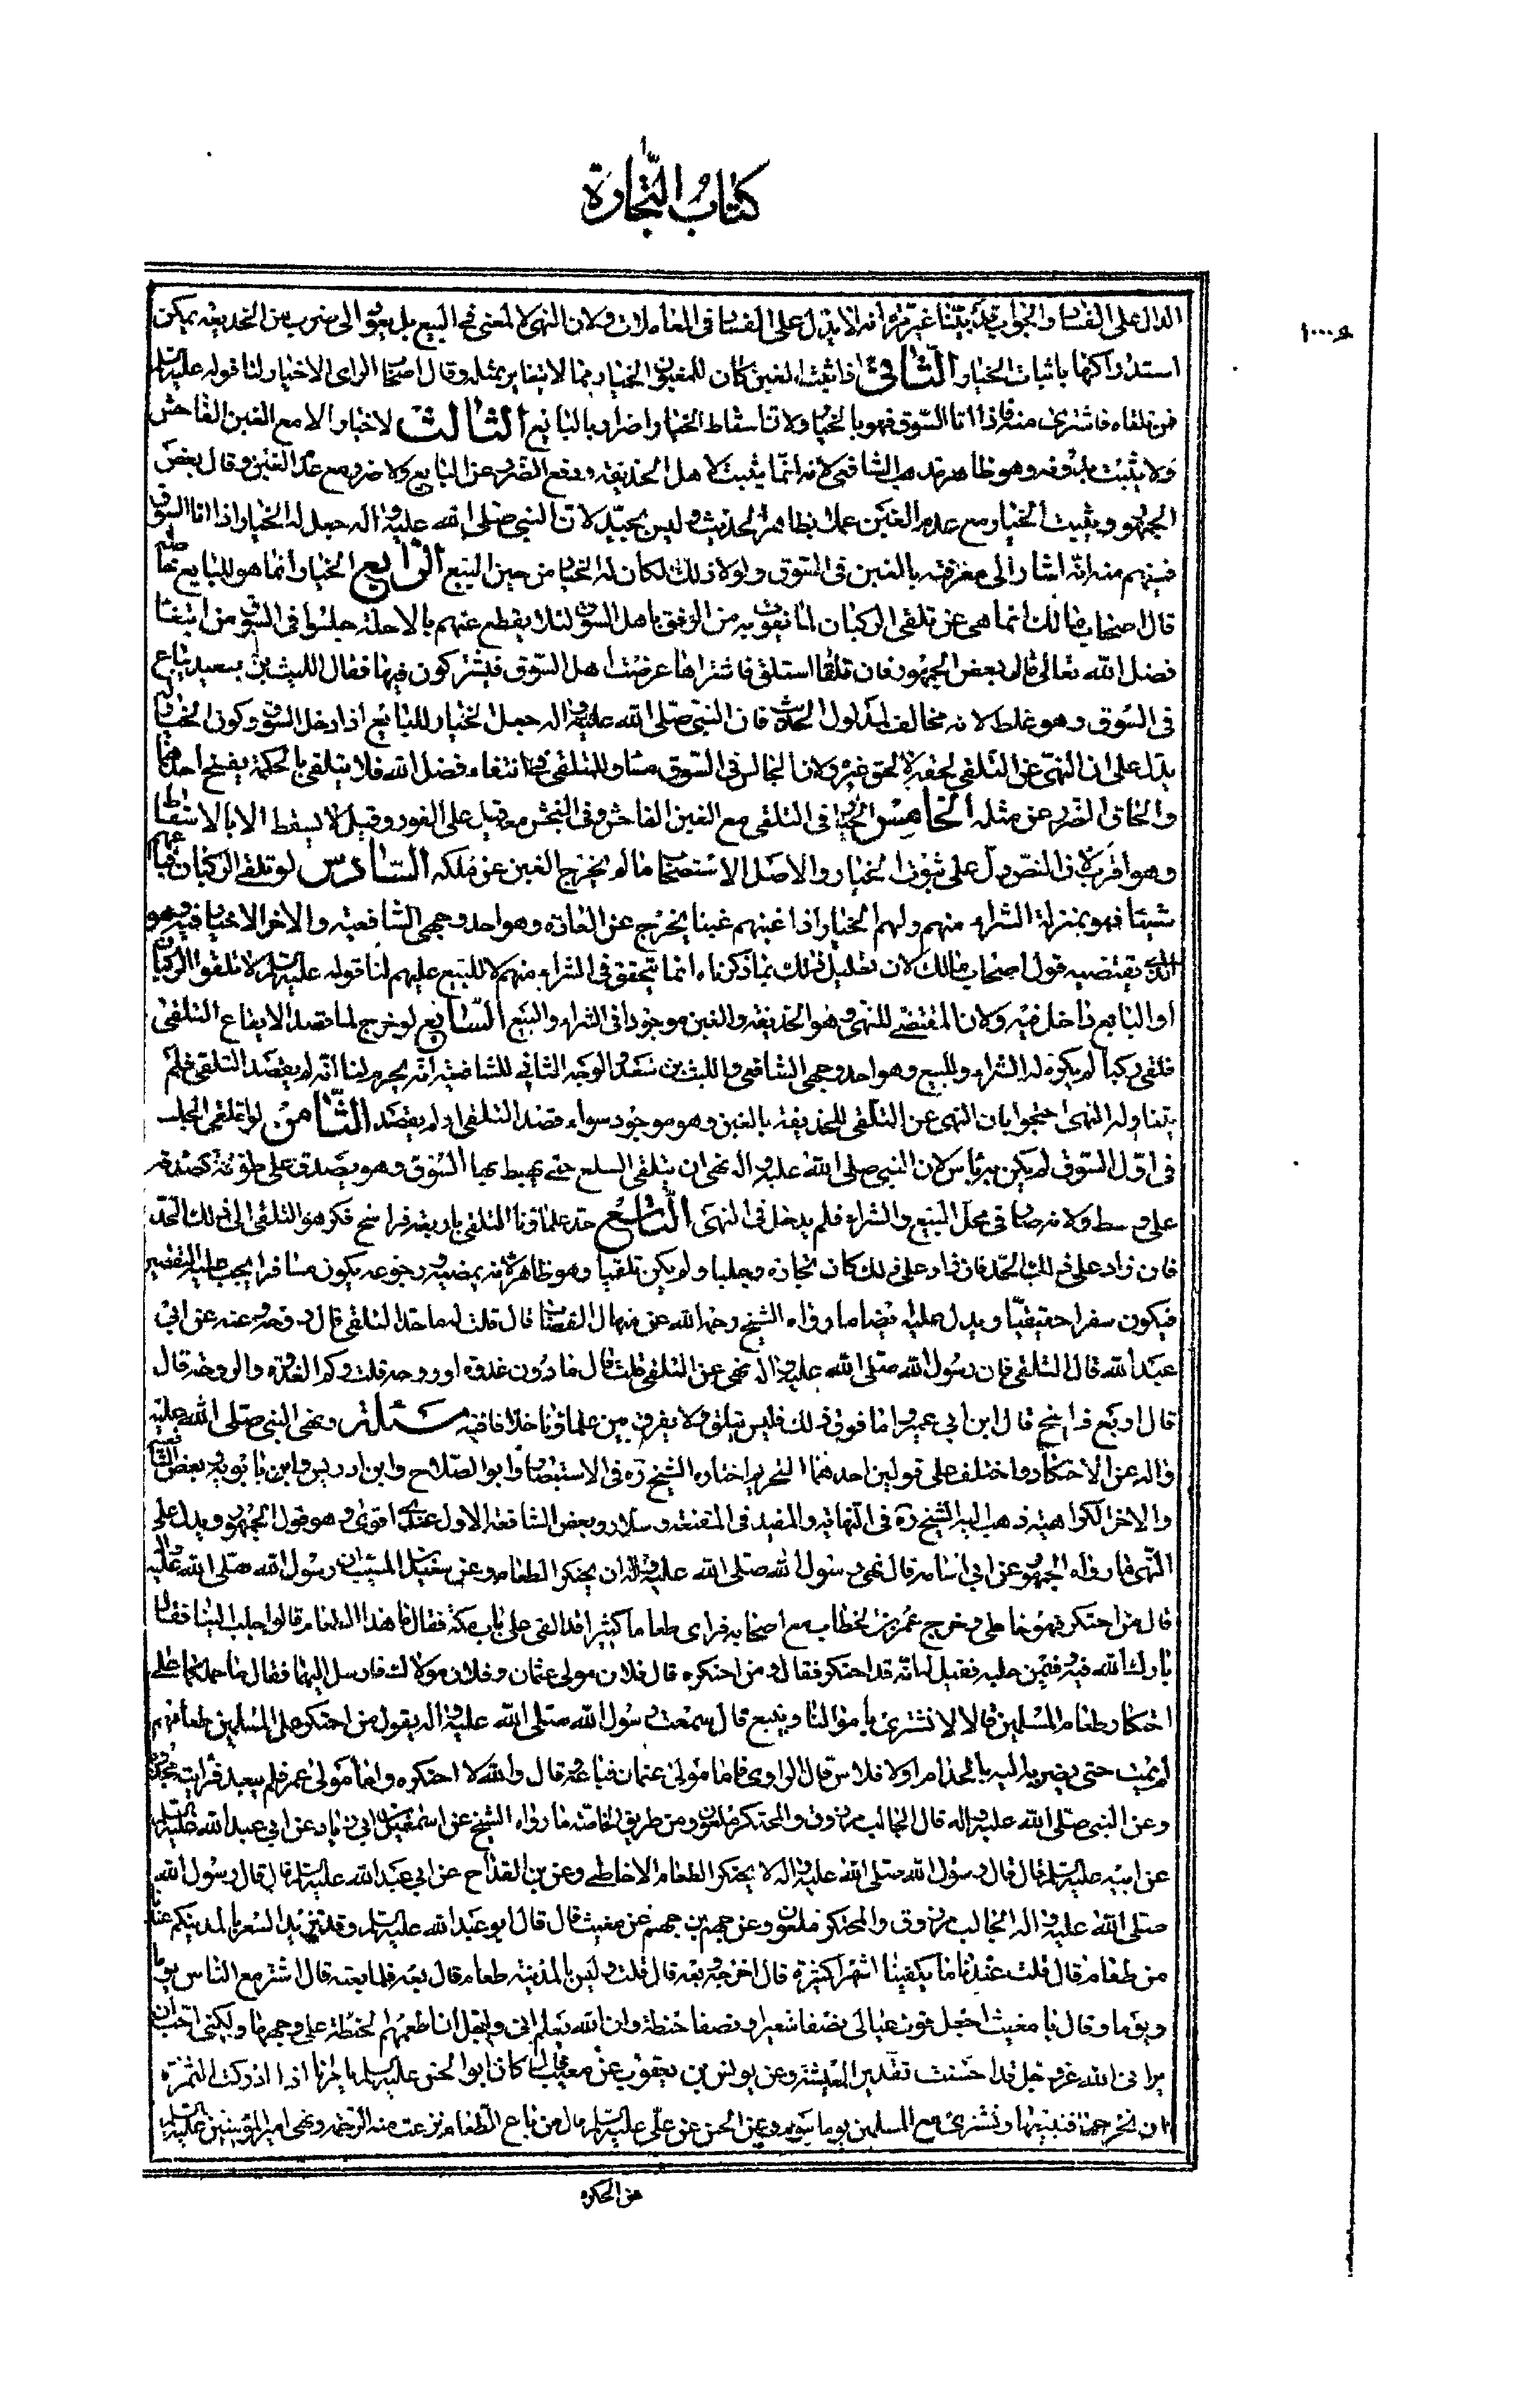 كتاب التجارة
١٠٠٠
الدال على الفساد والجواب قد بيّنّا غير مرّة أنه لا يدل على الفساد في المعاملات ولان النهى لا لمعنى في البيع بل يعود الى ضرب من الخديعة يمكن
استدراكها باثبات الخيار الثاني اذا ثبت الغبن كان للمغبون الخيار مما لا يتغابن بمثله وقال اصحاب الراى لا خيار لنا قوله عليه السلم
فمن تلقاه فاشترى منه فاذا اتا السّوق فهو بالخيار ولانّ اسقاط الخيار اضرار بالبايع الثالث لا خيار الا مع الغبن الفاحش
ولا يثبت بدونه وهو ظاهر مذهب الشافعى لانه انما يثبت لاجل الخديعة ودفع الضّرر عن البايع ولا ضرر مع عدم الغبن وقال بعض
الجمهور ويثبت الخيار مع عدم الغبن عملا بظاهر الحديث وليس بجيّد لانّ النبي صلى الله عليه واله جعل له الخيار اذا اتا السوق
فيفهم منه انّه اشار الى معرفته بالغبن في السّوق ولولا ذلك لكان له الخيار من حين البيع الرّابع الخيار انما هو للبايع
قال اصحاب مالك انما نهى عن تلقى الركبان لما يفوت به من الرفق باهل السوق لئلا يقطع عنهم ما لاجله جلسوا في السّوق من ابتغاء
فضل الله تعالى قال بعض الجمهور فان تلقّاها متلق فاشتراها عرضت على اهل السّوق فيشتركون فيها فقال الليث بن سعيد يباع
في السّوق وهو غلط لانه مخالف لمدلول الحديث فان النبّى صلّى الله عليه واله جعل الخيار للبايع اذا دخل السوق وكون الخيار له
يدل على ان النهى عن التلقى لحقه لا لحق غيره ولان الجالس في السّوق مساو للمتلقى في ابتغاء فضل الله فلا يليق بالحكمة فسخ احدهما
والحاق الضّرر عن مثله الخامس الخيار في التلقى مع الغبن الفاحش وفي النجش معه قيل على الفور وقيل لا يسقط الا بالاسقاط
وهو اقرب لان النّص دلّ على ثبوت الخيار والاصل الاستصحاب ما لم يخرج الغبن عن ملكه السّادس لو تلقى الركبان فباعهم
شيئا فهو بمنزلة الشراء منهم ولهم الخيار اذا غبنهم غبنا يخرج عن العادة وهو احد وجهى الشافعية والاخر لا خيار فيه وهو
الّذى يقتضيه قول اصحاب مالك لان تعليل ذلك بما ذكرناه انما يتحقق في الشراء منهم لا للبيع عليهم لنا قوله عليه السلم لا تلقوا الركبان
او البايع داخل فيه ولان المقتضى للنهى وهو الخديعة والغبن موجود في الشراء والبيع السّابع لو خرج لما قصد الا يقاع التلقى
فلقى ركبا لم يكره له الشراء والبيع وهو احد وجهى الشافعى والليث بن سعد والوجه الثانى للشافعية انّه يحرم لنا انّه لم يقصد التلقى فلم
يتناوله النهى احتجوا بان النهى عن التلقى للخديعة بالغبن وهو موجود سواء قصد التلقى او لم يقصد الثّامن لو تلقى الجلب
في اوّل السّوق لم يكن به باس لان النبي صلى الله عليه واله نهى ان يتلقى السلع حتى يهبط بها السّوق وهو يصدق على طرفه كصدقه
على وسطه ولانه صار في محل البيع والشراء فلم يدخل في النهى التّاسع حدّ علماؤنا التلقى باربعة فراسخ فكرهوا التلقى الى ذلك الحدّ
فان زاد على ذلك الحد فان زاد على ذلك كان تجارة وجلبا ولم يكن تلقيا وهو ظاهر لانه بمضيه ورجوعه يكون مسافرا يجب عليه التقصير
فيكون سفرا حقيقيّا ويدل عليه ايضا ما رواه الشيخ رحمه الله عن منهال القصاب قال قلت له ما حد التلقى قال روحة وعنه عن ابي
عبد الله قال لا تلقى فان رسول الله صلّى الله عليه واله نهى عن التلقى قلت قال ما دون غدوة او روحة قلت وكم الغدوة والروحة قال
قال اربع فراسخ قال ابن ابي عمير وما فوق ذلك فليس بتلق ولا يعرف بين علماؤنا خلافا فيه مسئلة ونهى النبي صلى الله عليه
واله عن الاحتكار واختلف على قولين احدهما التحريم اختاره الشيخ ره في الاستبصار وابو الصلاح وابن ادريس وابن بابويه وبعض الشافعية
والاخر الكراهية ذهب اليه الشيخ ره في النّهاية والمفيد في المقنعة وسلار وبعض الشافعة الاول عندى اقوى وهو قول الجمهور ويدل على
النّهى ما رواه الجمهور عن ابي امامة قال نهى رسول الله صلّى الله عليه واله ان يحتكر الطعام وعن سعيد بن المسيّب ان رسول الله صلّى الله عليه واله
قال من احتكر فهو خاطى وخرج عمر بن الخطاب مع اصحابه فراى طعاما كثيرا قد القى على باب مكة فقال ما هذا الطعام قالوا جلب الينا فقال
بارك الله فيه وفيمن جلبه فقيل له انّه قد احتكر فقال ومن احتكره قال فلان مولى عثمان وفلان مولاك فارسل اليهما فقال ما حملكما على
احتكار طعام المسلمين قالا لا نشترى باموالنا ونبيع قال سمعت رسول الله صلّى الله عليه واله يقول من احتكر على المسلمين طعامهم
لم يمت حتى يضربه الله بالجذام او الافلاس قال الراوى فاما مولى عثمان فباعه وقال والله لا احتكره واما مولى عمر فلم يبعه فرايته مجذوما
وعن النبي صلّى الله عليه واله قال الجالب مرزوق والمحتكر ملعون ومن طريق الخاصّة ما رواه الشيخ عن اسمعيل بن ابي زياد عن ابي عبد الله عليه السلم
عن ابيه عليه السلم قال قال رسول الله صلى الله عليه واله لا يحتكر الطعام الا خاطى وعن بن القدّاح عن ابي عبد الله عليه السلم قال قال رسول الله
صلّى الله عليه واله الجالب مرزوق والمحتكر ملعون وعن جهم بن جهم عن مغيث قال قال ابو عبد الله عليه السلم وقد تزيّد السّعر بالمدينة كم عندنا
من طعام قال قلت عندنا ما يكفينا اشهرا كثيرة قال اخرجه وبعه قال قلت وليس بالمدينة طعام قال بعه فلما بعته قال اشتر مع الناس يوما
ويوما وقال يا مغيث اجعل قوت عيالى نصفا شعيرا ونصفا حنطة وان الله يعلم انى واجد ان اطعمهم الحنطة على وجهها ولكنى احب ان
يرانى الله عزّ وجل قد احسنت تقدير المعيشة وعن يونس بن يعقوب عن معتب قال كان ابو الحسن عليه السلم يامرنا اذا ادركت الثمرة
ان نخرجها فنبيعها ونشترى مع المسلمين يوما بيوم وعن الحسن عن علّى عليه السلم قال من باع الطّعام نزعت منه الرحمة ونهى امير المؤمنين عليه السلم
عن الحكرة